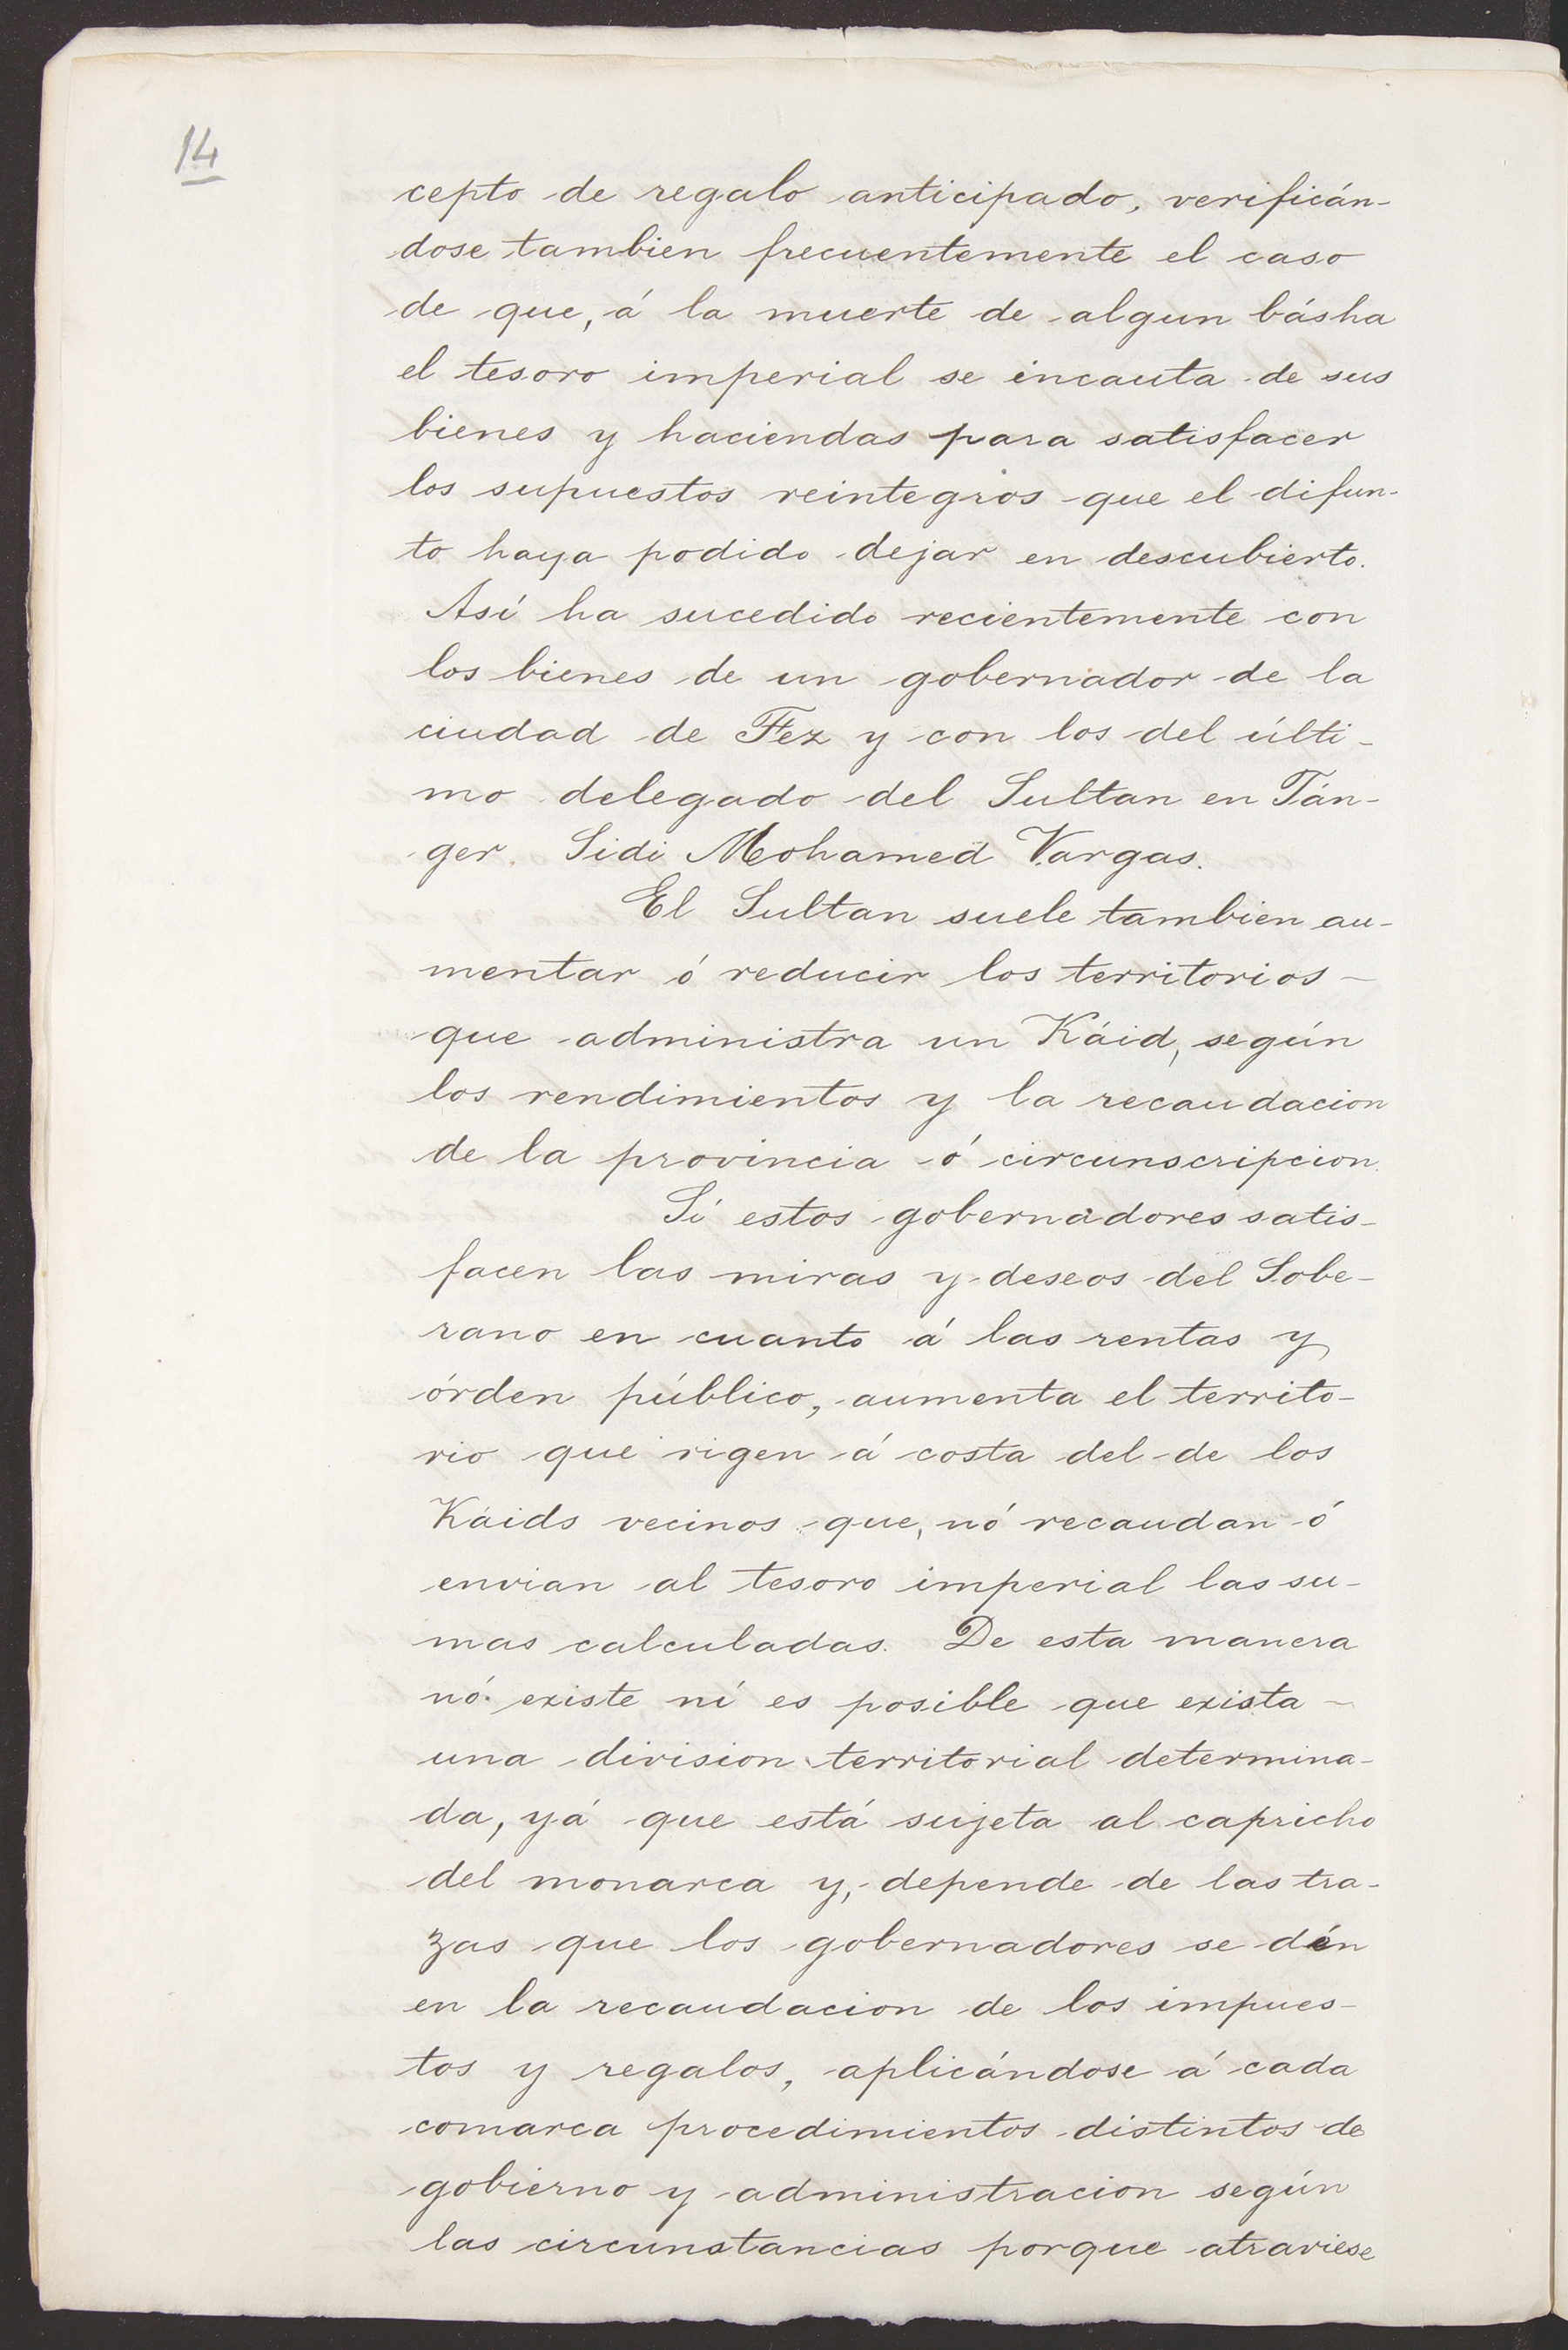 14
cepto de regalo anticipado, verificán-
dose tambien frecuentemente el caso
de que, á la muerte de algun básha
el tesoro imperial se incauta de sus
bienes y haciendas para satisfacer
los supuestos reintegros que el difun-
to haya podido dejar en descubierto.
Así ha sucedido recientemente con
los bienes de un gobernador de la
ciudad de Fez y con los del últi-
mo delegado del Sultan en Tán-
ger. Sidi Mohamed Vargas.
El Sultan suele tambien au-
mentar ó reducir los territorios -
que administra un Káid, según
los rendimientos y la recaudacion
de la provincia ó circunscripcion.
Sí estos gobernadores satis-
facen las miras y deseos del Sobe-
rano en cuanto á las rentas y
órden público, aumenta el territo-
rio que rigen á costa del de los
Káids vecinos que, nó recaudan ó
envian al tesoro imperial las su-
mas calculadas. De esta manera
nó existe ní es posible que exista -
una division territorial determina-
da, yá que está sujeta al capricho
del monarca y, depende de las tra-
zas que los gobernadores se dén
en la recaudacion de los impues-
tos y regalos, aplicándose á cada
comarca procedimientos distintos de
gobierno y administracion según
las circunstancias porque atraviese